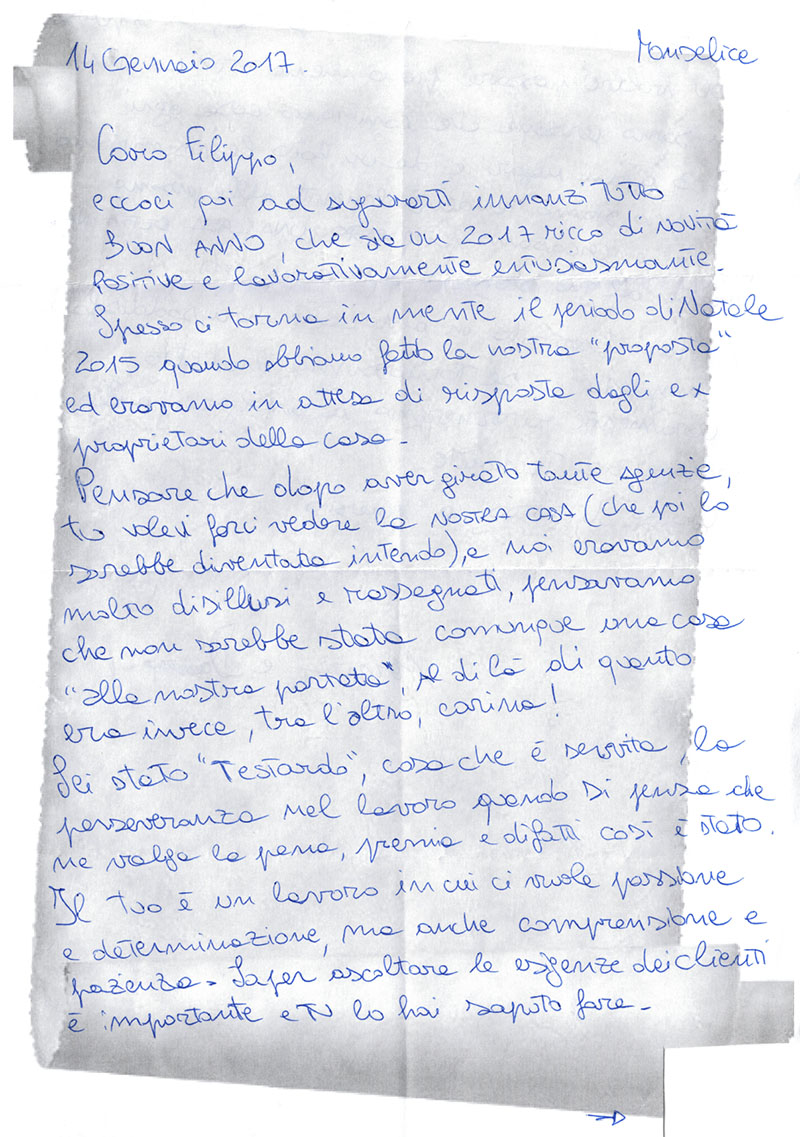 14 Gennaio 2017. Monselice
Caro Filippo,
eccoci qui ad augurarti innanzi tutto
BUON ANNO, che sia un 2017 ricco di novità
positive e lavorativamente entusiasmante.
Spesso ci torna in mente il periodo di Natale
2015 quando abbiamo fatto la nostra "proposta"
ed eravamo in attesa di risposta dagli ex
proprietari della casa.
Pensare che dopo aver girato tante agenzie,
tu volevi farci vedere la NOSTRA CASA (che poi lo
sarebbe diventata intendo), e noi eravamo
molto disillusi e rassegnati, pensavamo
che non sarebbe stata comunque una casa
"alla nostra portata", al di là di quanto
era invece, tra l'altro, carina!
Sei stato "Testardo", cosa che è servita, la
perseveranza nel lavoro quando si pensa che
ne valga la pena, premia e difatti così è stato.
Il tuo è un lavoro in cui ci vuole passione
e determinazione, ma anche comprensione e
pazienza. Saper ascoltare le esigenze dei clienti
è importante e TU lo hai saputo fare.